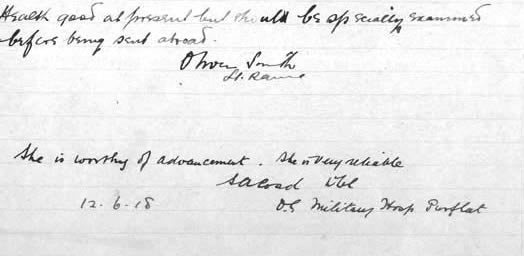 Health good at present but should be specially examined
before being sent abroad.
Oliver Smith
She is worthy of advancement. She is very reliable
12.6.18
Military Hosp Purfleet